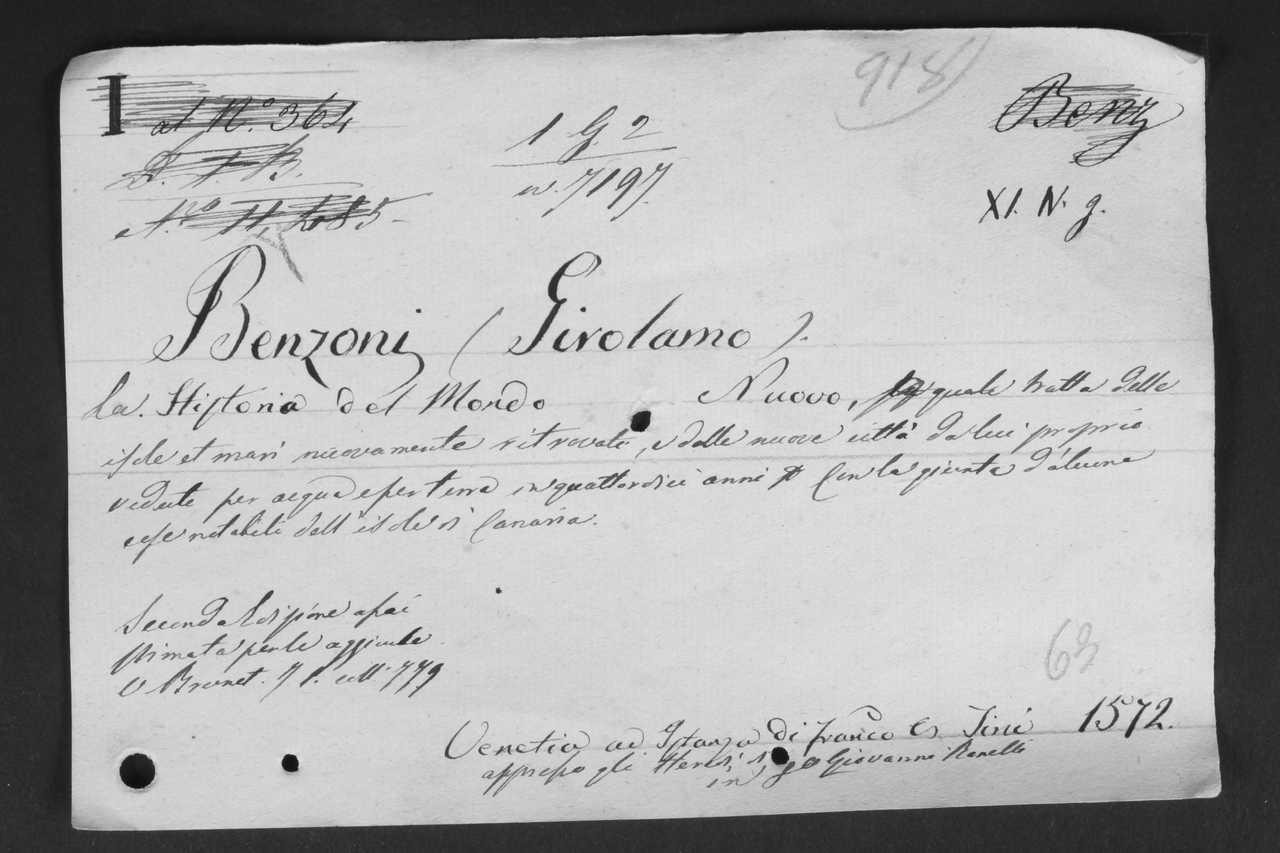 I
al N.º 364
D. 1. B.
N.ro 11,485
1 G. 2
w. 7197.
918
Benz
XI. N. g.
Benzoni (Girolamo).
La. Historia del Mondo Nuovo, quale tratta delle
isole et mari nuovamente ritrovate, e delle nuove città da lui proprio
vedute per acqua e per terra in quattordici anni Con la giunta d'alcune
cose notabili dell'isole di Canaria.
Seconda Edizione assai
stimata per le aggiunte
V Brunet. 1 782
63
Venetia ad Istanza di Franco & Tini 1572.
appresso gli Heredi Giovanni Bonelli
in